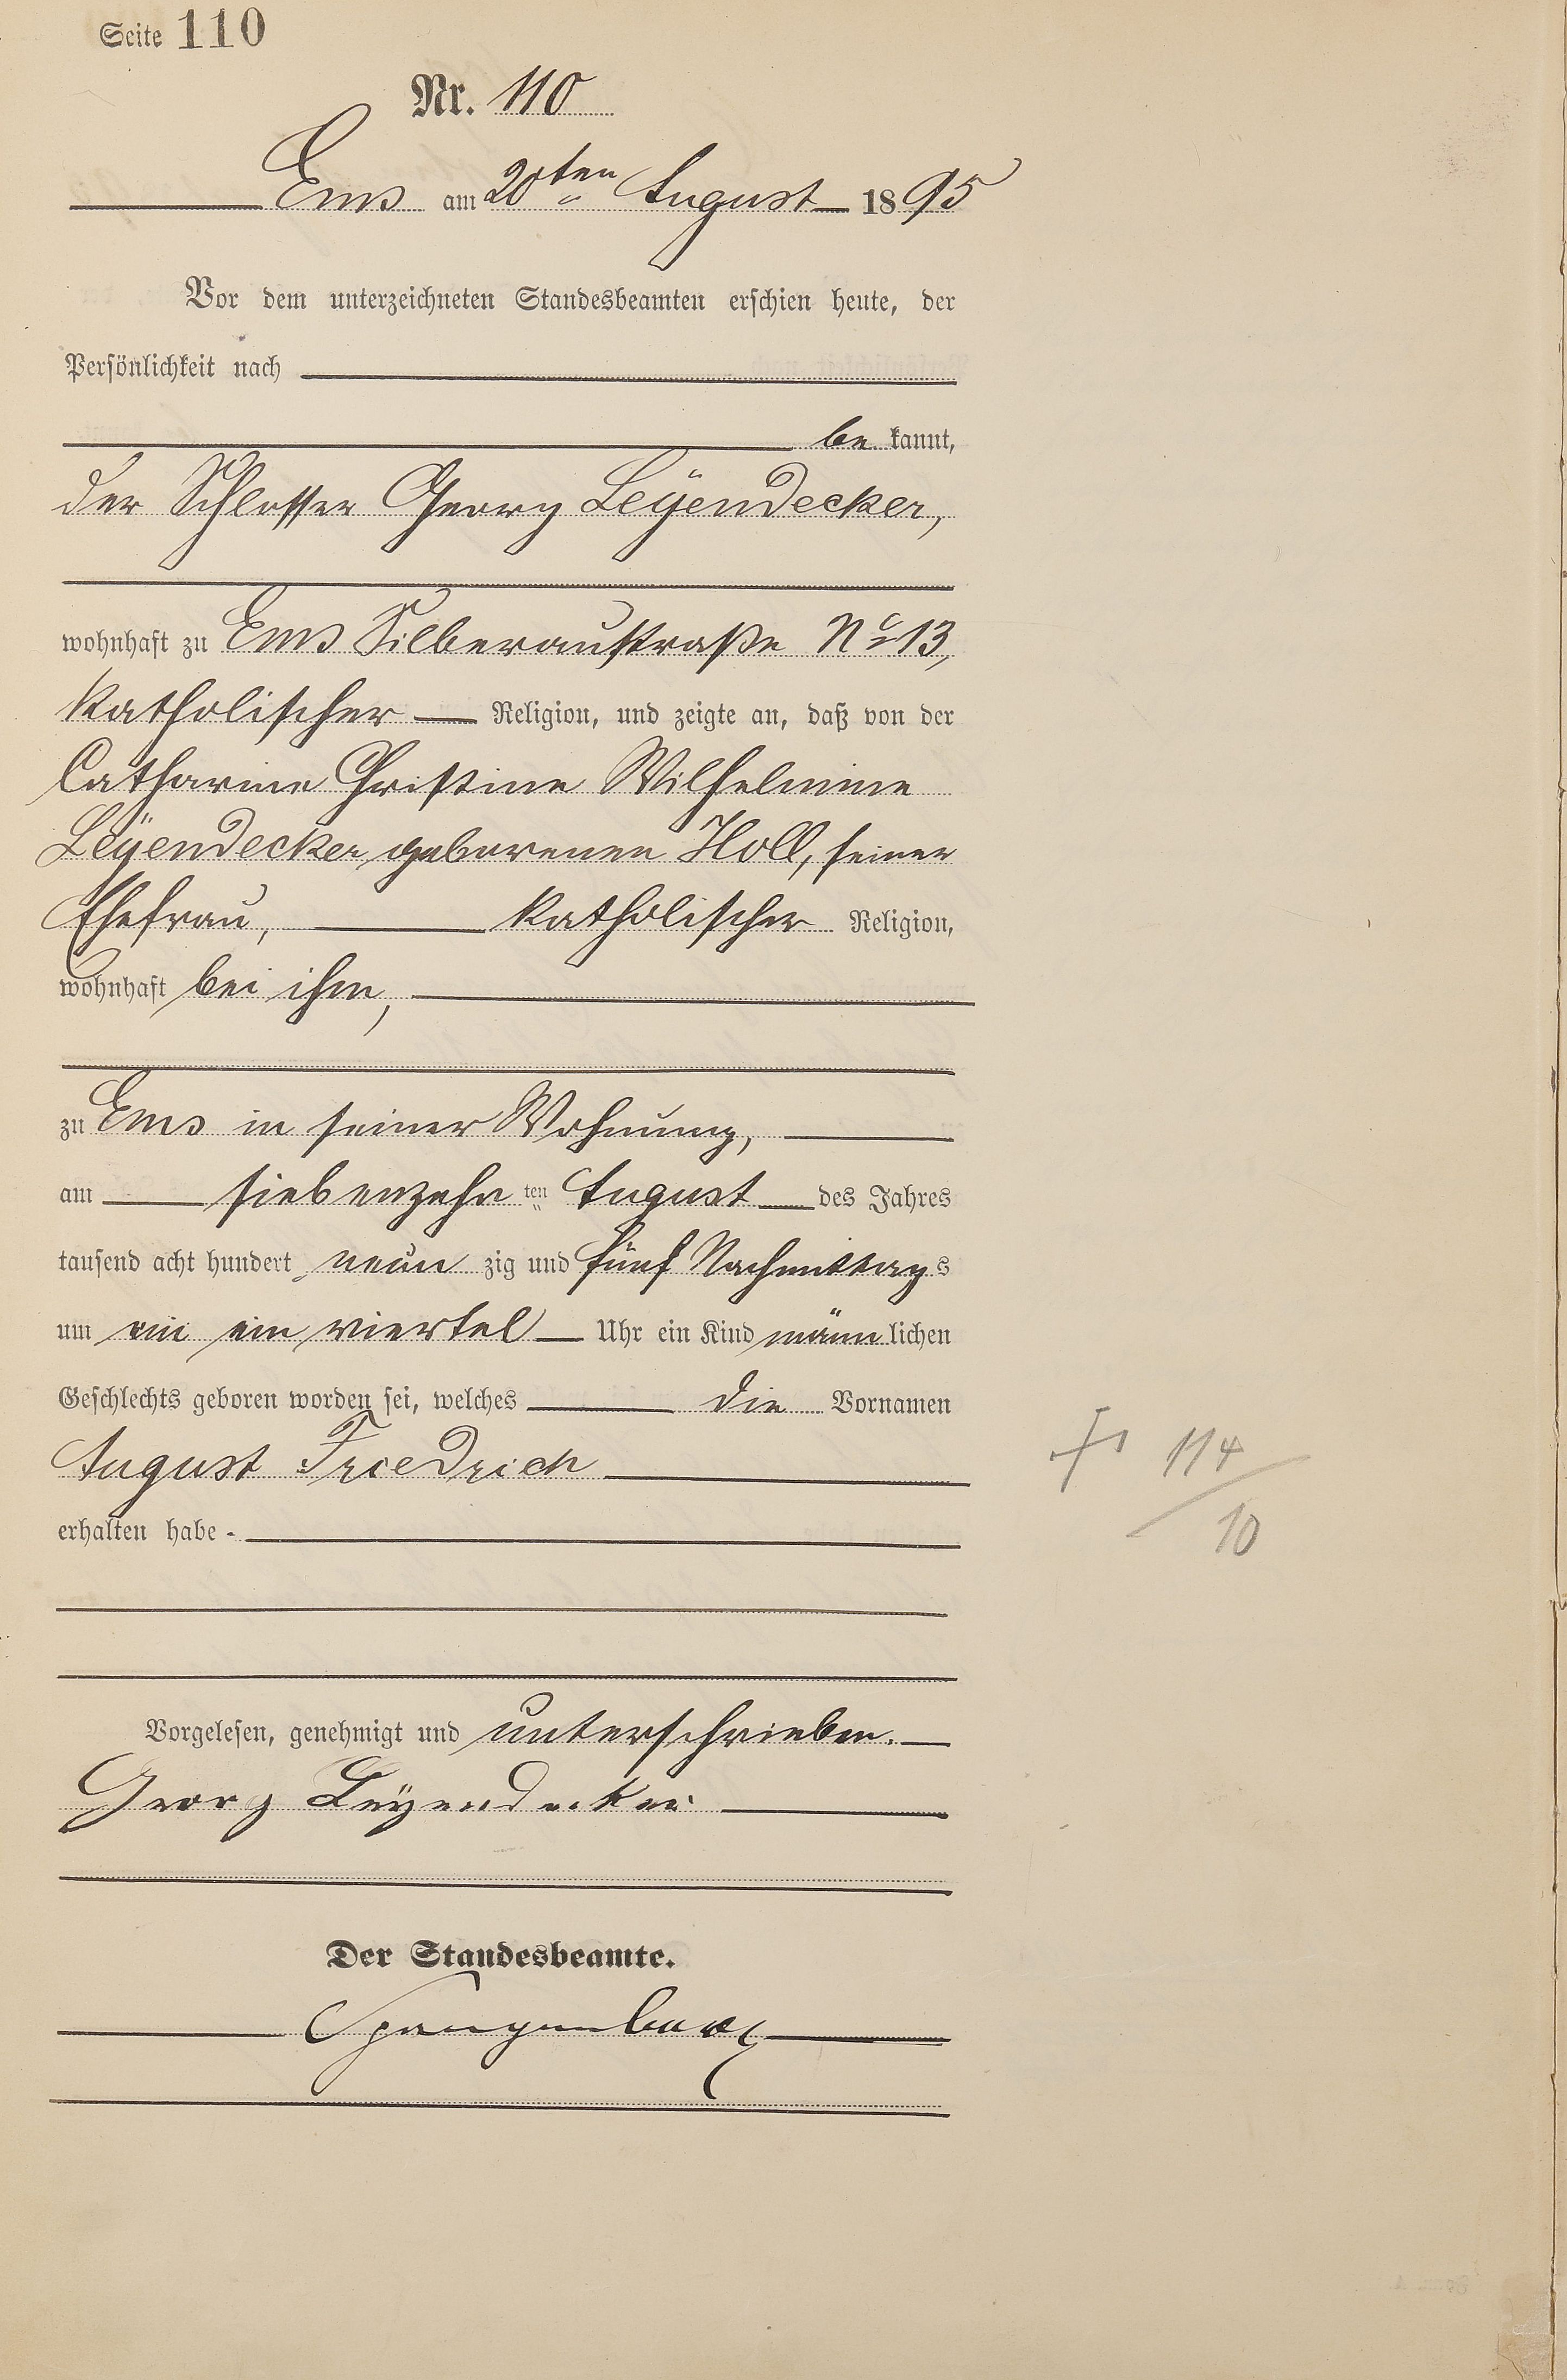 Seite 110
Nr. 110
Ems am 20ten August 1895
Vor dem unterzeichneten Standesbeamten erschien heute, der
Persönlichkeit nach
be kannt,
der Schlosser Georg Leÿendecker,
wohnhaft zu Ems Silberaustraße No 13,
katholischer Religion, und zeigte an, daß von der
Catharine Christine Wilhelmine
Leÿendecker geborenen Holl, seiner
Ehefrau, katholischer Religion,
wohnhaft bei ihm,
zu Ems in seiner Wohnung,
am siebenzehn ten August des Jahres
tausend acht hundert neun zig und fünf Nachmittags
um ein ein viertel Uhr ein Kind männ lichen
Geschlechts geboren worden sei, welches die Vornamen
August Friedrich
erhalten habe -
Vorgelesen, genehmigt und unterschrieben.
Georg Leÿendecker
Der Standesbeamte.
Spangenberg
114
10